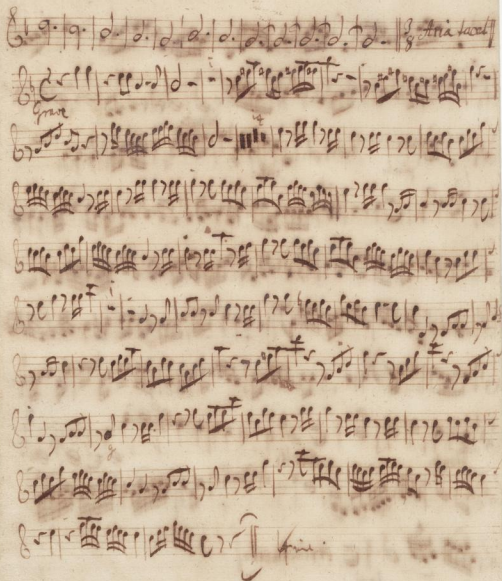 Aria tacet
Grave
Fine.